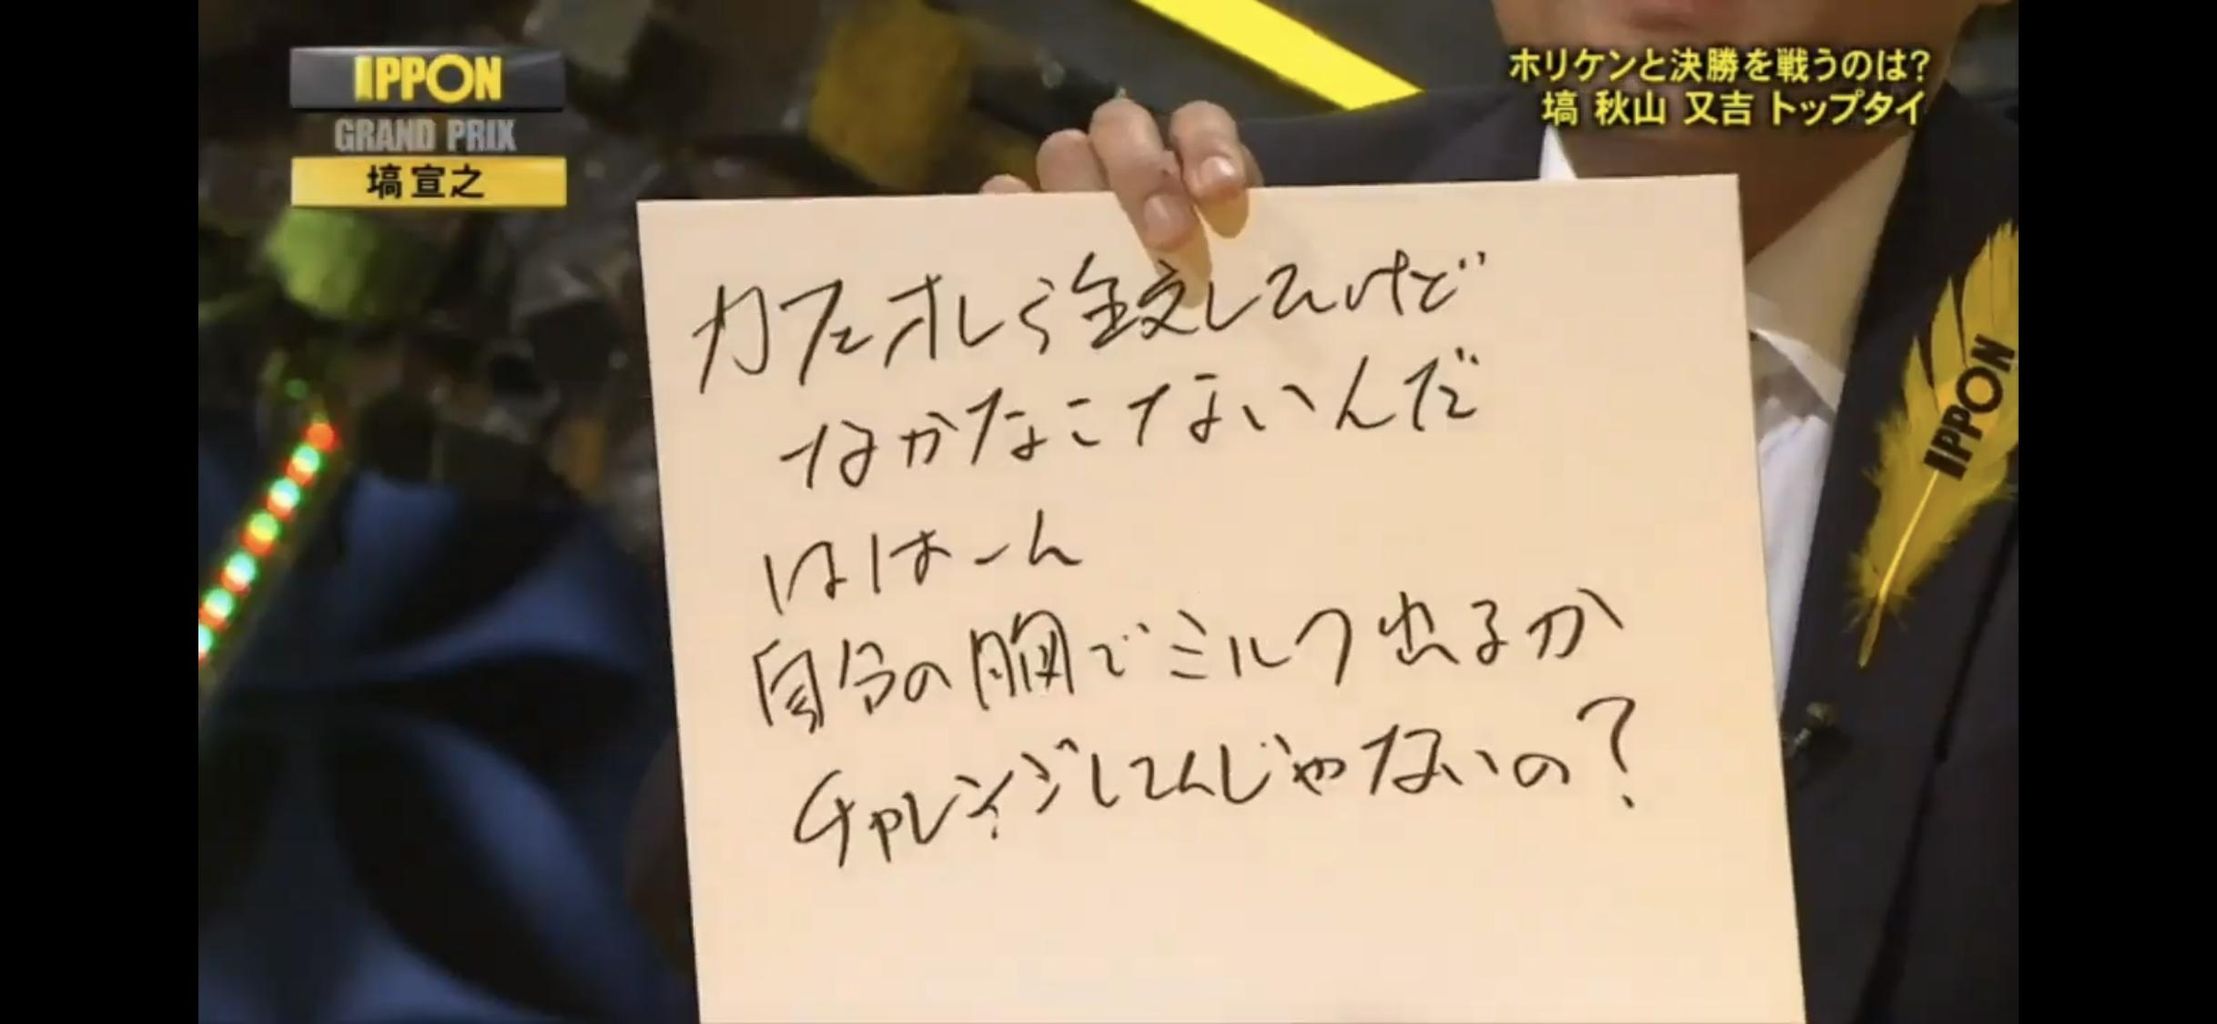 IPPON
GRAND PRIX
塙 宣之
ホリケンと決勝を戦うのは?
塙 秋山 又吉 トップタイ
カフェオレを注文してんけど
なかなこナないんだ
ははーん
自分の胸でミルク出るか
チャレンジしてんじゃないの?
IPPON